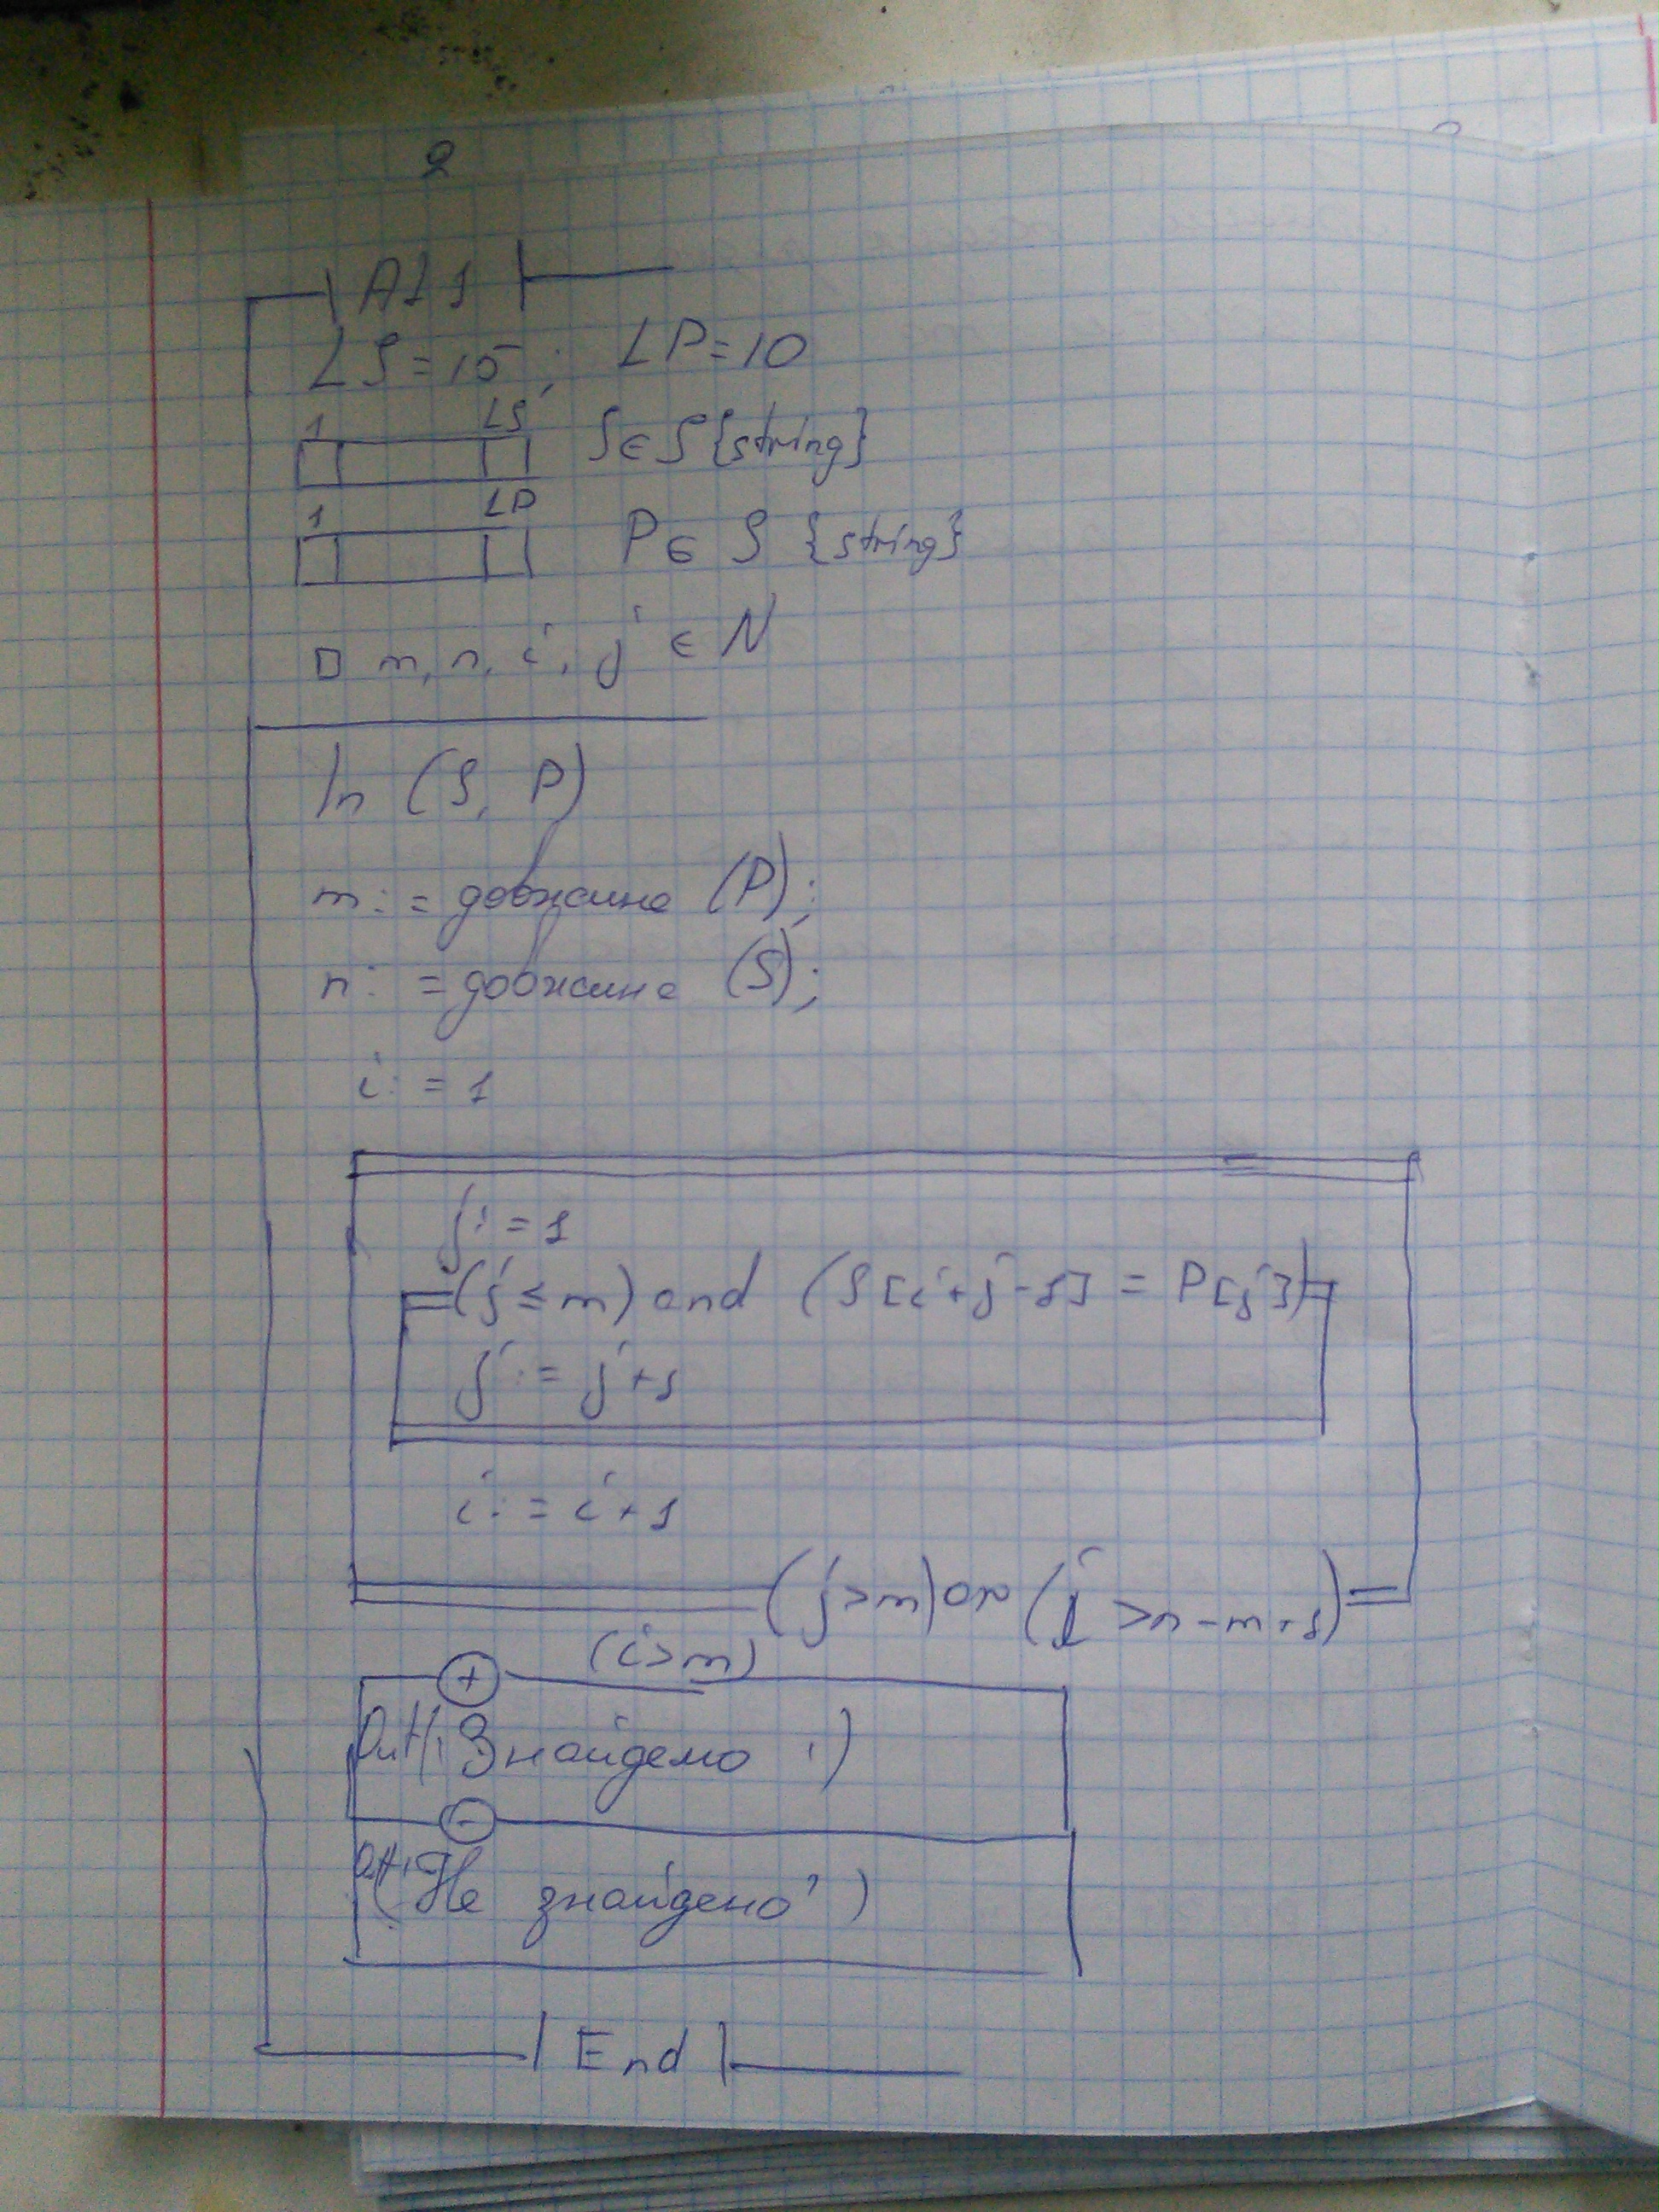 2
AL 1
LS = 15 ; LP = 10
1 LS S ∈ S {string}
1 LP P ∈ S {string}
□ m, n, i, j ∈ N
In (S, P)
m := довжина (P);
n := довжина (S);
i := 1
j := 1
(j ≤ m) and (S[i+j-1] = P[j])
j := j+1
i := i+1
(j > m) or (i > n-m+1)
(i > m)
+
Out(' Знайдено ')
-
Out('Не знайдено')
End